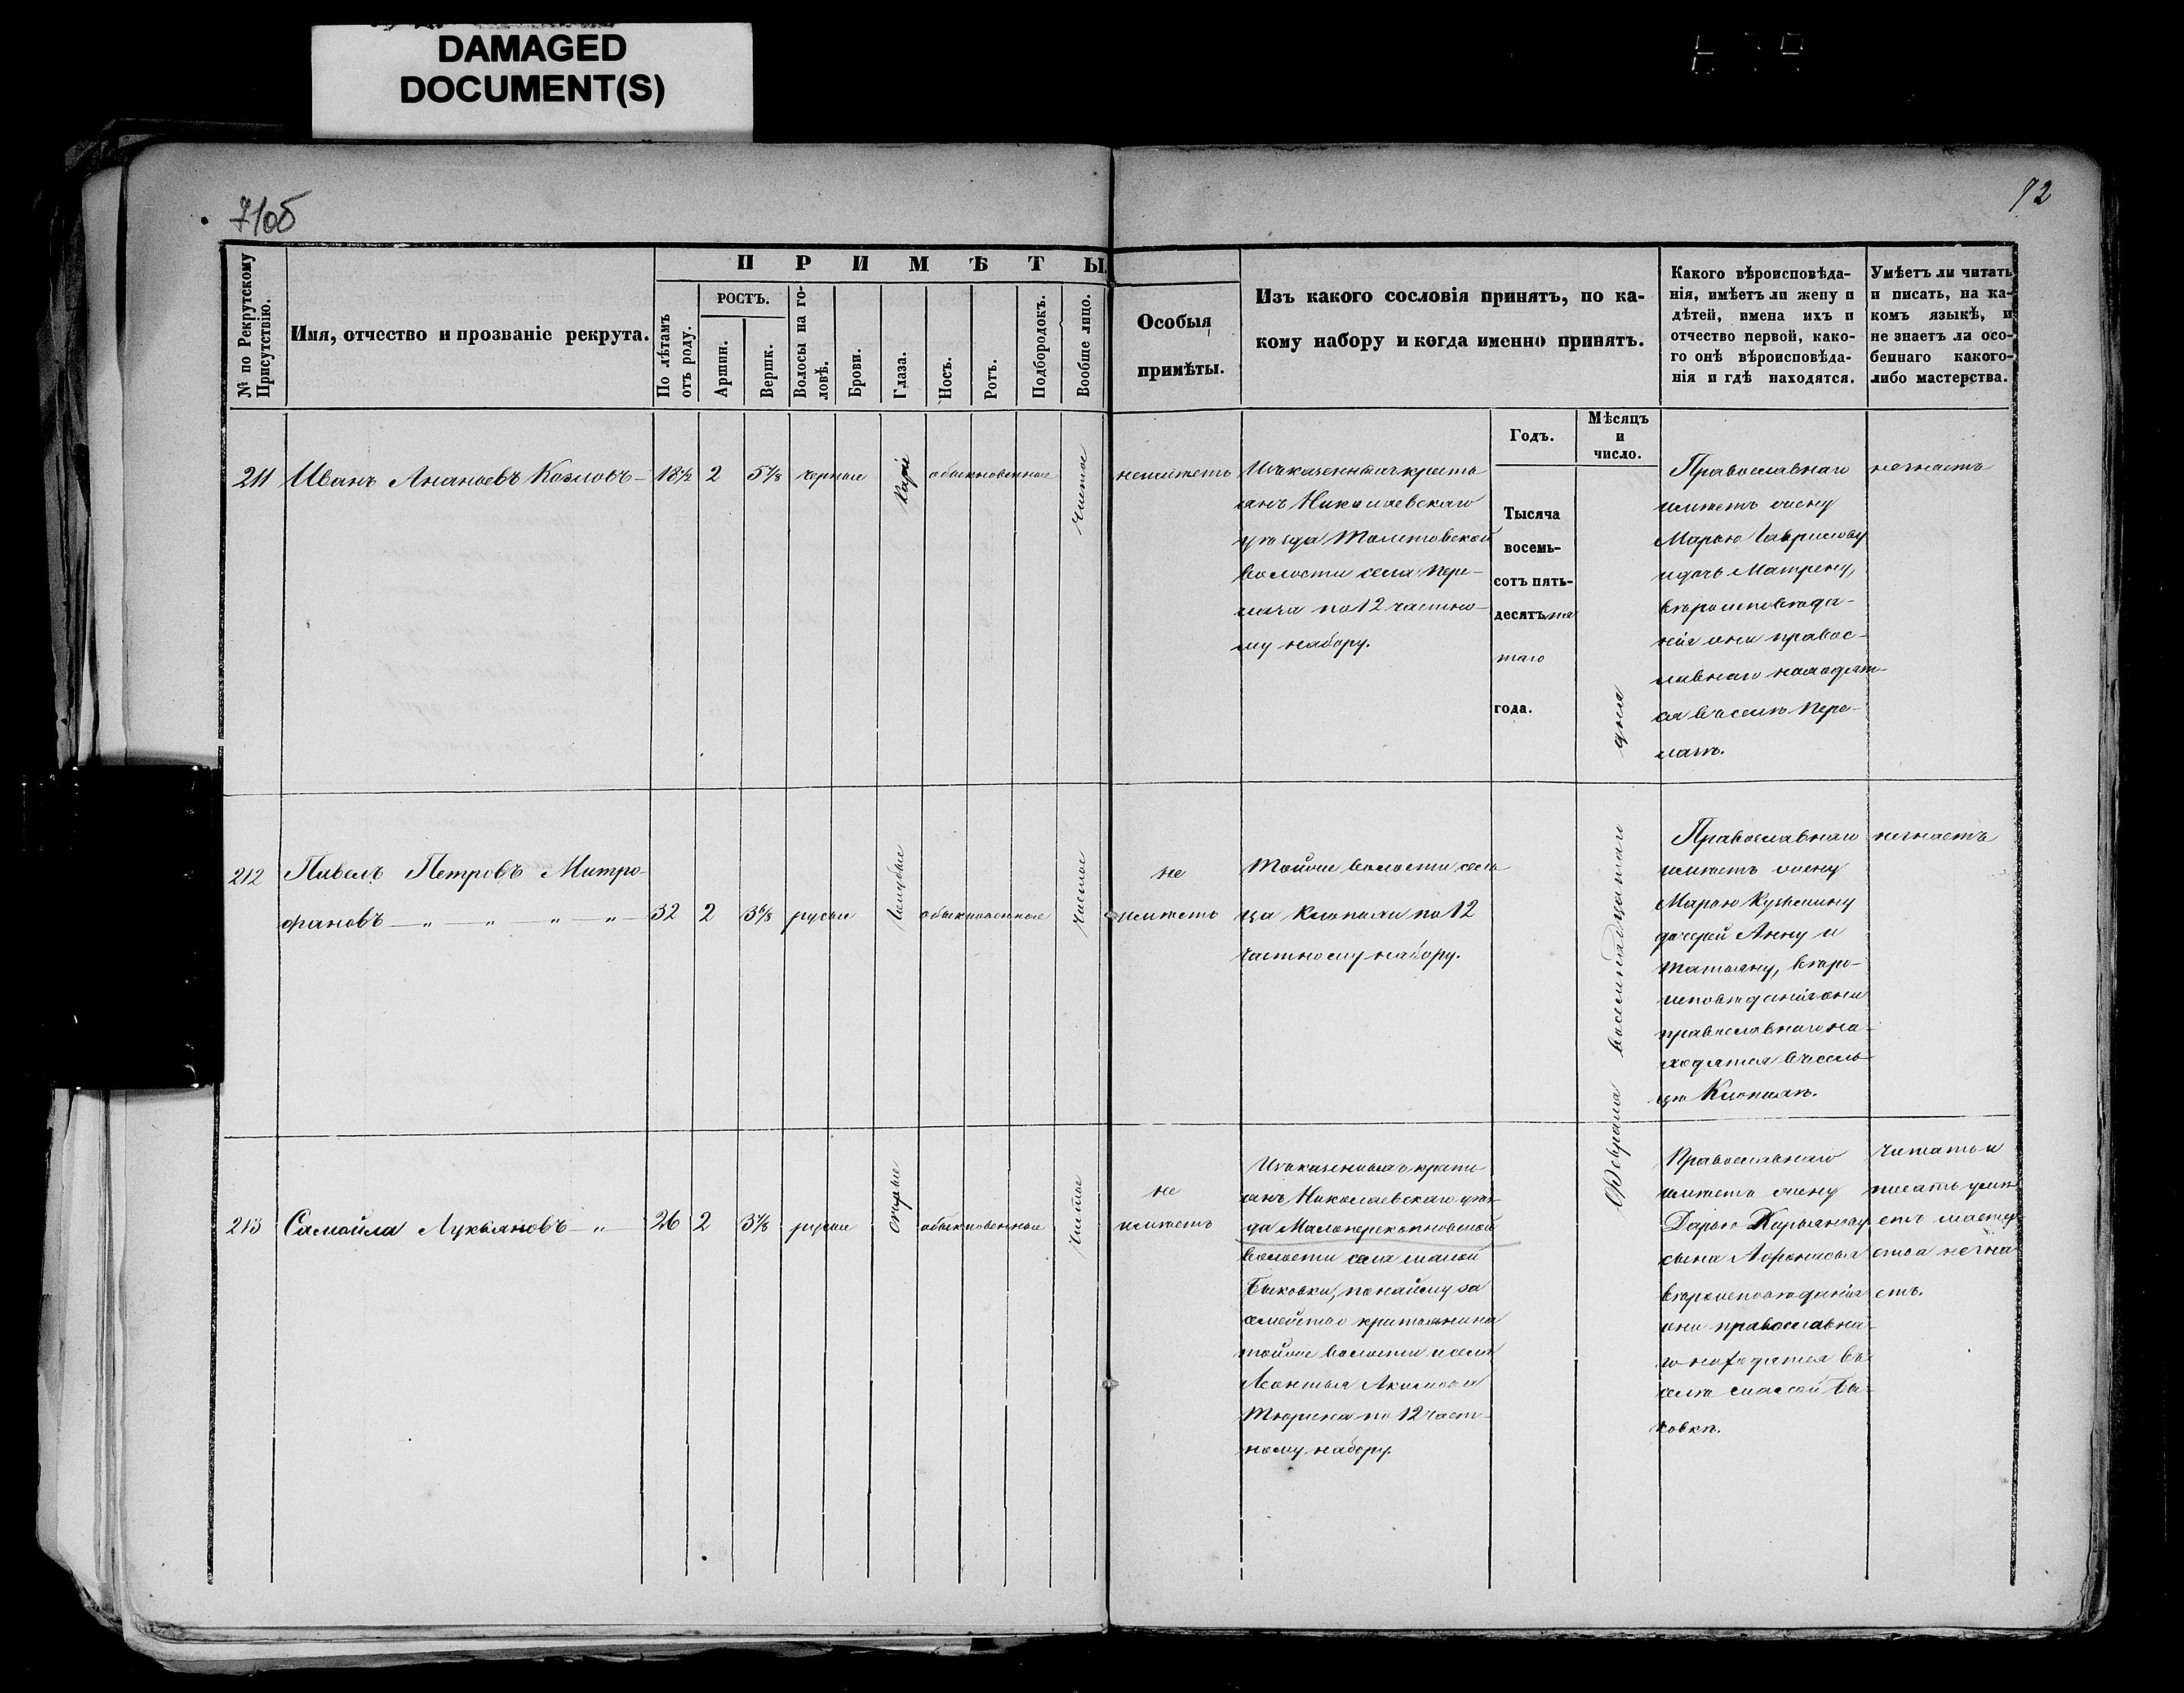 DAMAGED
DOCUMENT(S)
71об
72
№ по Рекрутскому
Присутствію.
Имя, отчество и прозваніе рекрута.
ПРИМѢТЫ.
По лѣтамъ
отъ роду.
РОСТЪ.
Аршин.
Вершк.
Волосы на го-
ловѣ.
Брови.
Глаза.
Носъ.
Ротъ.
Подбородокъ.
Вообще лицо.
Особыя
примѣты.
Изъ какого сословія принятъ, по ка-
кому набору и когда именно принятъ.
Какого вѣроисповѣда-
нія, имѣетъ ли жену и
дѣтей, имена ихъ и
отчество первой, како-
го онѣ вѣроисповѣда-
нія и гдѣ находятся.
Умѣетъ ли читать
и писать, на ка-
комъ языкѣ, и
не знаетъ ли осо-
беннаго какого-
либо мастерства.
Годъ.
Мѣсяцъ
и
число.
Тысяча
восемь-
сотъ пять-
десятъ пя
таго
года.
Февраля восемнадцатаго дня
211 Иванъ Ананьевъ Козловъ 18½ 2 5⅞ черные Каріе обыкновенные чистое неимѣетъ
Изъ казенныхъ кресть
янъ Николаевскаго
уѣзда Толстовской
волости села Пере-
лаза по 12 частно-
му набору.
Православнаго
имѣетъ жену
Марью Гаврилову
и дочь Матрену,
вѣроисповѣда-
нія они правос-
лавнаго находят-
ся въ селѣ Пере-
лазѣ.
незнаетъ
212 Павелъ Петровъ Митро-
фановъ 32 2 3⅝ русые голубые обыкновенные чистое
не
имѣетъ
Тойже волости сель
ца по 12
частному набору.
Православнаго
имѣетъ жену
Марью Кузьмину
дочерей Анну и
Татьяну, вѣро-
исповѣданія они
православнаго на-
ходятся въ сель-
цѣ
незнаетъ
213 Самойла Лукьяновъ 26 2 3⅞ русые сѣрые обыкновенные чистое
не
имѣетъ
Изъ казенныхъ крестьянъ Николаевскаго уѣз-
да Малоперекопновской
волости села малой
Быковки, по найму за
семейство крестьянина
тойже волости и села
Леонтья Акимова
Тюрина по 12 част-
ному набору.
Православнаго
имѣетъ жену
Дарью
сына Афонасья
вѣроисповѣданія
они православна-
го находятся въ
селѣ малой Бы-
ковкѣ.
Читать и
писать умѣ-
етъ мастер
ства незна
етъ.